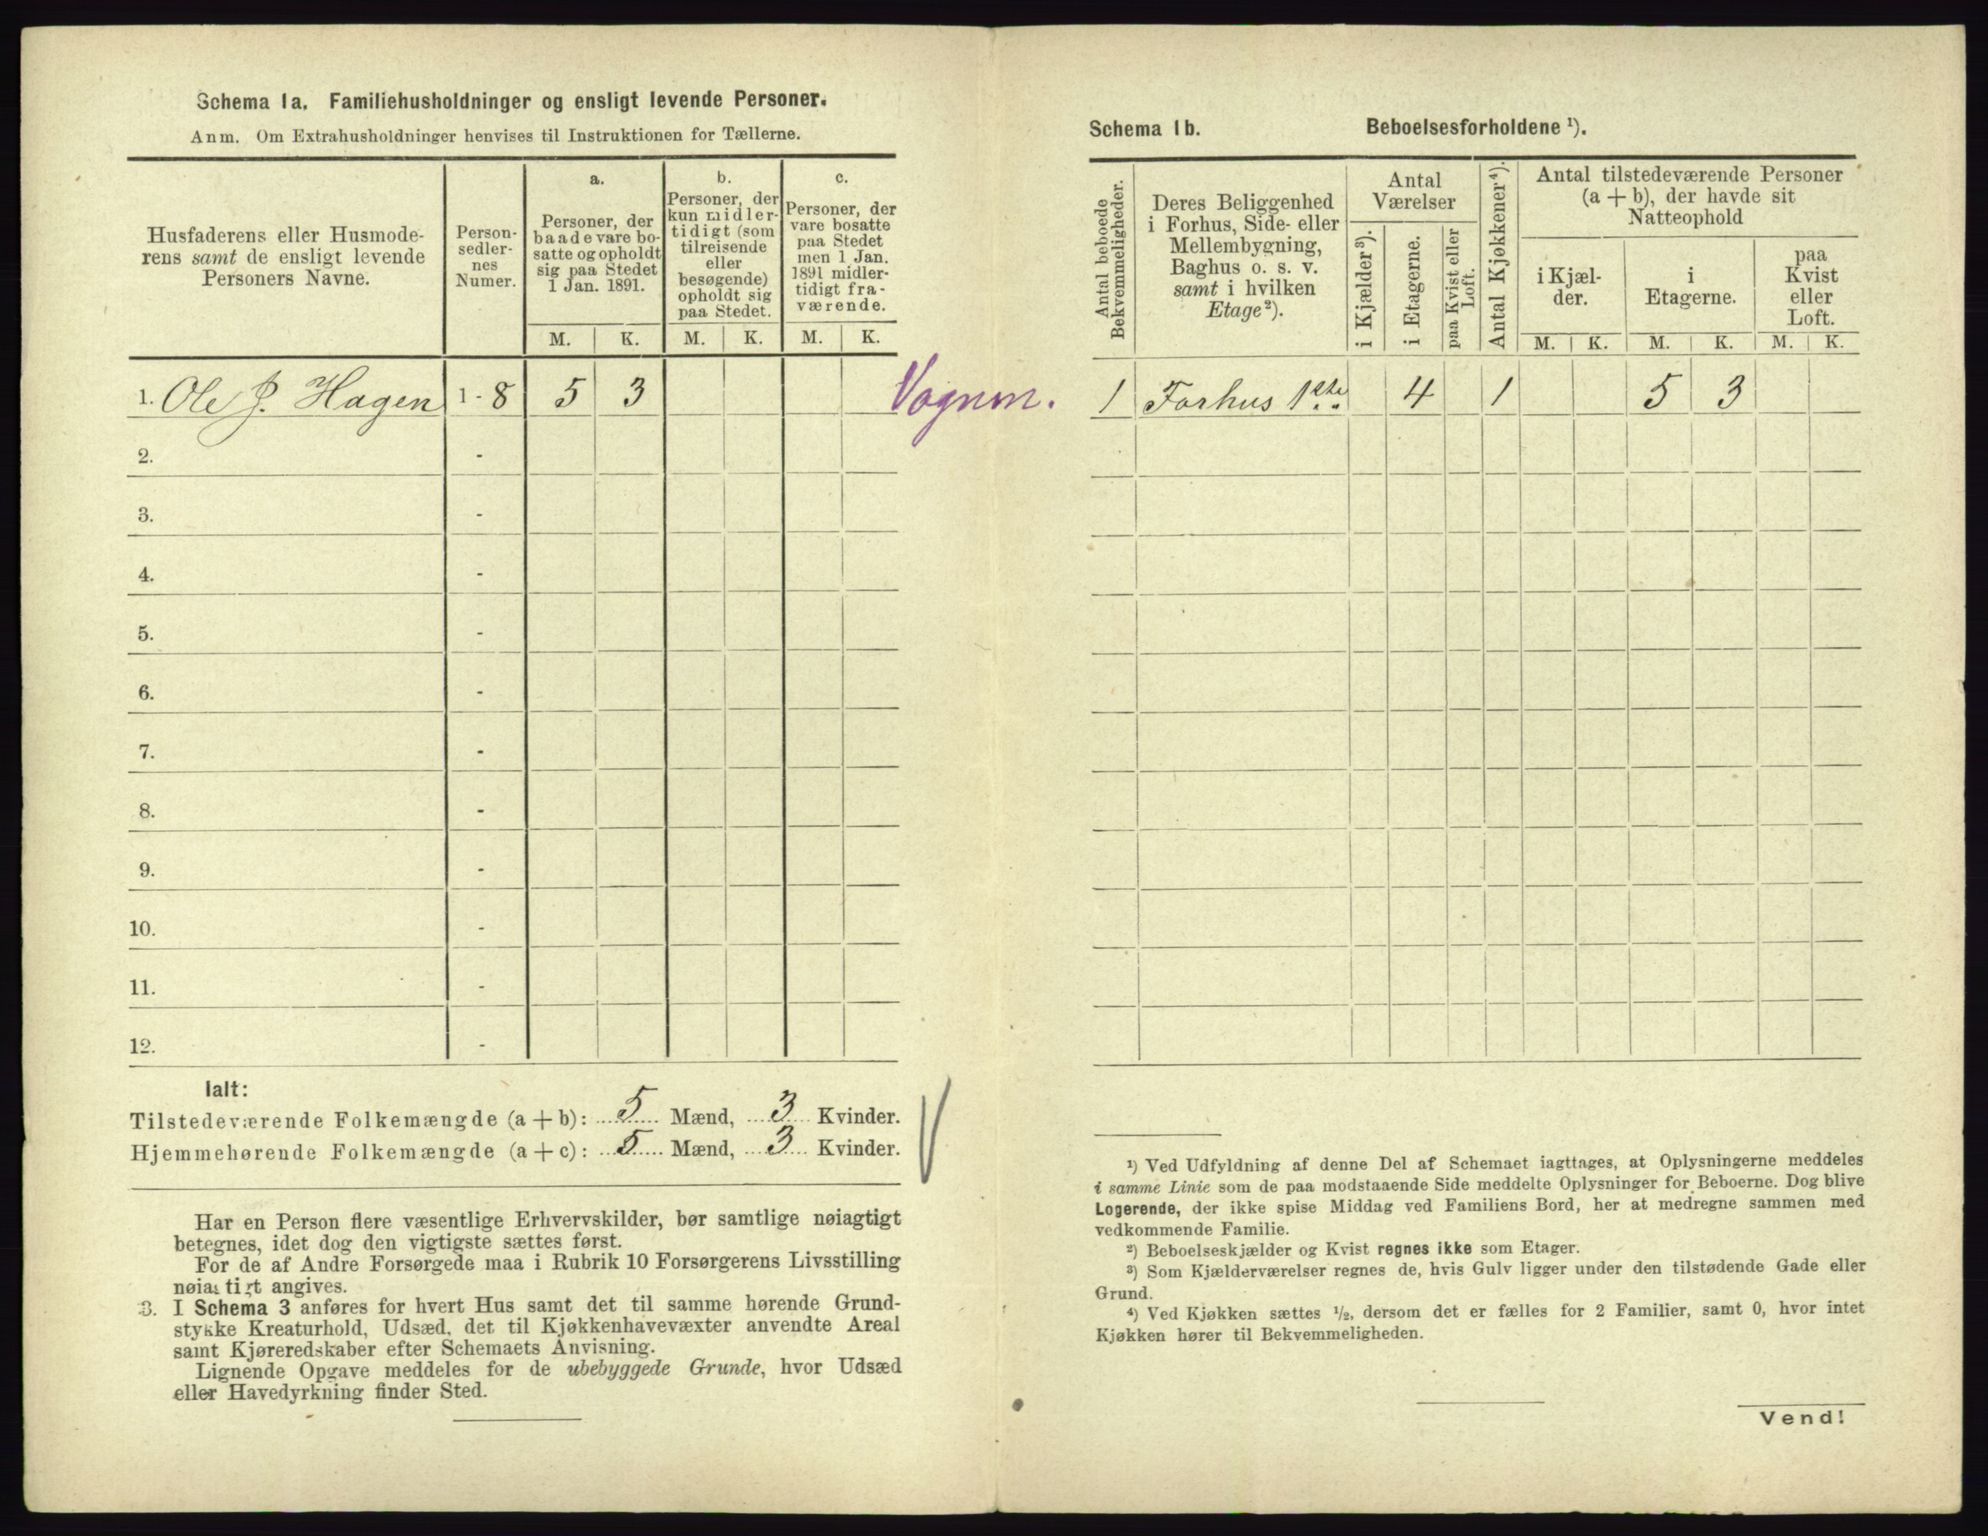 Schema 1a. Familiehusholdninger og ensligt levende Personer.
Anm. Om Extrahusholdninger henvises til Instruktionen for Tællerne.
Husfaderens eller Husmode-
rens samt de ensligt levende
Personers Navne.
Person-
sedler-
nes
Numer.
a.
Personer, der
baade vare bo-
satte og opholdt
sig paa Stedet
1 Jan. 1891.
b.
Personer, der
kun midler-
tidigt (som
tilreisende
eller
besøgende)
opholdt sig
paa Stedet.
c.
Personer, der
vare bosatte
paa Stedet
men 1 Jan.
1891 midler-
tidigt fra-
værende.
M. K. M. K. M. K.
1. Ole J. Hagen 1 - 8 5 3 Vognm.
2. -
3. -
4. -
5. -
6. -
7. -
8. -
9. -
10. -
11. -
12. -
Ialt:
Tilstedeværende Folkemængde (a + b): 5 Mænd, 3 Kvinder.
Hjemmehørende Folkemængde (a + c): 5 Mænd, 3 Kvinder.
Har en Person flere væsentlige Erhvervskilder, bør samtlige nøiagtigt
betegnes, idet dog den vigtigste sættes først.
For de af Andre Forsørgede maa i Rubrik 10 Forsørgerens Livsstilling
nøiagtigt angives.
3. I Schema 3 anføres for hvert Hus samt det til samme hørende Grund-
stykke Kreaturhold, Udsæd, det til Kjøkkenhavevæxter anvendte Areal
samt Kjøreredskaber efter Schemaets Anvisning.
Lignende Opgave meddeles for de ubebyggede Grunde, hvor Udsæd
eller Havedyrkning finder Sted.
Schema 1b. Beboelsesforholdene ¹).
Antal beboede
Bekvemmeligheder.
Deres Beliggenhed
i Forhus, Side- eller
Mellembygning,
Baghus o. s. v.
samt i hvilken
Etage²).
Antal
Værelser
i Kjælder³).
i Etagerne.
paa Kvist eller
Loft.
Antal Kjøkkener⁴).
Antal tilstedeværende Personer
(a + b), der havde sit
Natteophold
i Kjæl-
der.
i
Etagerne.
paa
Kvist
eller
Loft.
M. K. M. K. M. K.
1 Forhus 1ste 4 1 5 3
¹) Ved Udfyldning af denne Del af Schemaet iagttages, at Oplysningerne meddeles
i samme Linie som de paa modstaaende Side meddelte Oplysninger for Beboerne. Dog blive
Logerende, der ikke spise Middag ved Familiens Bord, her at medregne sammen med
vedkommende Familie.
²) Beboelseskjælder og Kvist regnes ikke som Etager.
³) Som Kjælderværelser regnes de, hvis Gulv ligger under den tilstødende Gade eller
Grund.
⁴) Ved Kjøkken sættes ½, dersom det er fælles for 2 Familier, samt 0, hvor intet
Kjøkken hører til Bekvemmeligheden.
Vend!